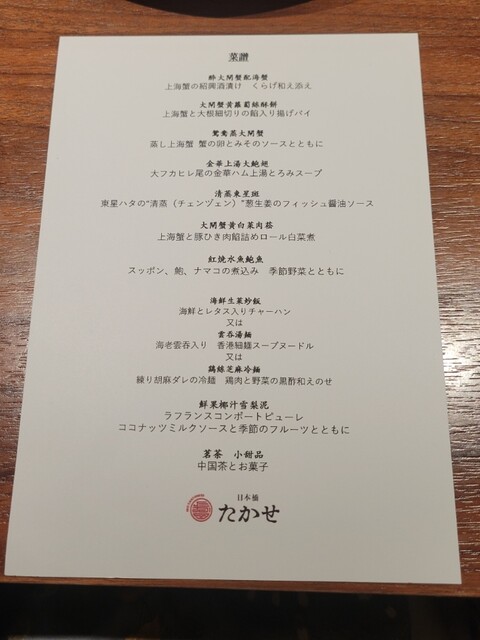 菜譜
酔大閘蟹配海蟹
上海蟹の紹興酒漬け くらげ和え添え
大閘蟹黄蘿蔔絲酥餅
上海蟹と大根細切りの餡入り揚げパイ
鴛鴦蒸大閘蟹
蒸し上海蟹 蟹の卵とみそのソースとともに
金華上湯大鮑翅
大フカヒレ尾の金華ハム上湯とろみスープ
清蒸東星斑
東星ハタの“清蒸（チェンヅェン）”葱生姜のフィッシュ醤油ソース
大閘蟹黄白菜肉菇
上海蟹と豚ひき肉餡詰めロール白菜煮
紅焼水魚鮑魚
スッポン、鮑、ナマコの煮込み 季節野菜とともに
海鮮生菜炒飯
海鮮とレタス入りチャーハン
又は
雲呑湯麺
海老雲呑入り 香港細麺スープヌードル
又は
鶏絲芝麻冷麺
練り胡麻ダレの冷麺 鶏肉と野菜の黒酢和えのせ
鮮果椰汁雪梨泥
ラフランスコンポートピューレ
ココナッツミルクソースと季節のフルーツとともに
茗茶 小甜品
中国茶とお菓子
日本橋
たかせ